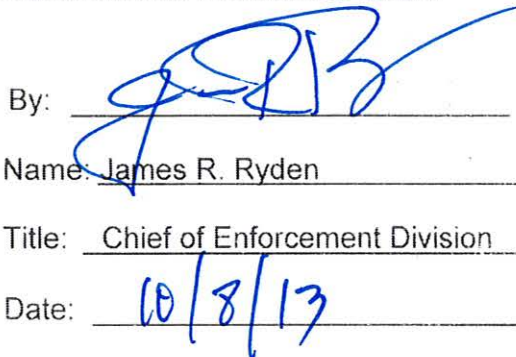 By:
Name: James R. Ryden
Title: Chief of Enforcement Division
Date: 10/8/13